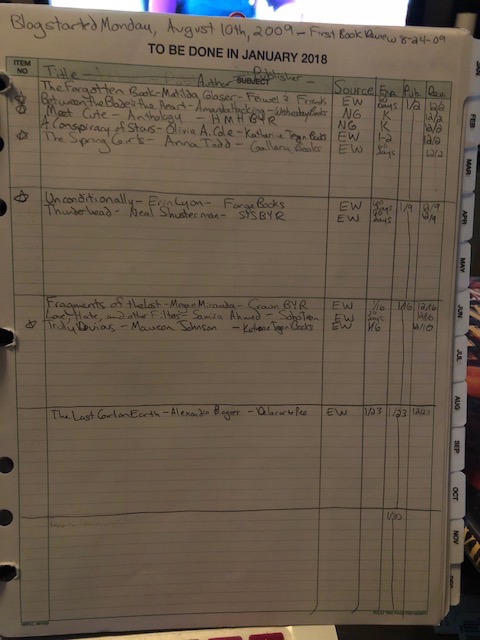 Blog started Monday, August 10th, 2009 - First Book Review 8-24-09
TO BE DONE IN JANUARY 2018
ITEM NO
SUBJECT
Title - Author - Publisher - Source Exp. Pub. Rev.
The Forgotten Book - Mechthild Glaser - Feiwel & Friends EW 60 days 1/2 12/2
Between the Blade & the Heart - Amanda Hocking - Wednesday Books NG K 12/2
Meet Cute - Anthology - HMH BYR NG K 12/2
A Conspiracy of Stars - Olivia A. Cole - Katherine Tegen Books EW 1-2 12/2
The Spring Girls - Anna Todd - Gallery Books EW days 12/2
Unconditionally - Erin Lyon - Forge Books EW days 1/9 12/9
Thunderhead - Neal Shusterman - S&S BYR EW days 12/9
Fragments of the Lost - Megan Miranda - Crown BYR EW 1/6 1/16 12/16
Love, Hate, and other Filters - Samira Ahmed - Soho Teen EW days 12/16
Truly Devious - Maureen Johnson - Katherine Tegen Books EW 1/6
The Last Girl on Earth - Alexandra Blogier - Delacorte Press EW 1/23 1/23 12/23
1/30
JAN
FEB
MAR
APR
MAY
JUN
JUL
AUG
SEP
OCT
NOV